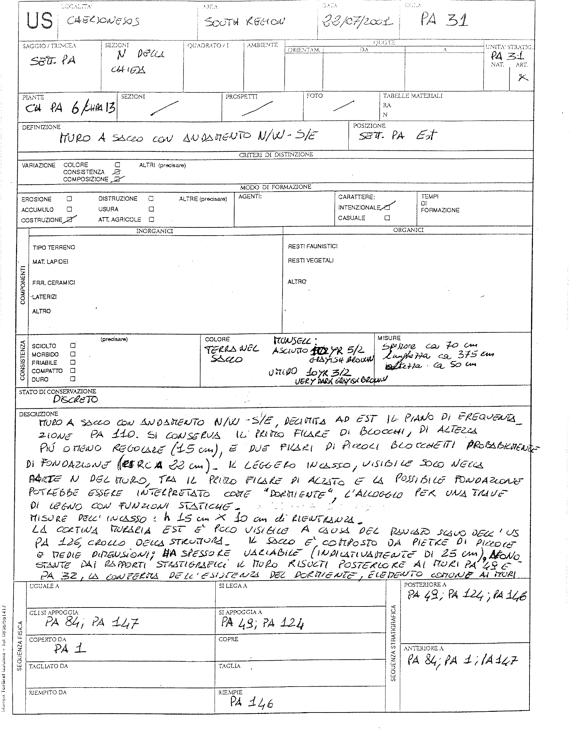 US
LOCALITA'
CHERSONESOS
AREA
SOUTH REGION
DATA
22/07/2001
PA 31
SAGGIO / TRINCEA
SETT. PA
SEZIONI
N DELLA CHIESA
QUADRATO / I
AMBIENTE
QUOTE
ORIENTAM.
DA
A
UNITA' STRATIG.
PA 31
NAT. ART.
X
PIANTE
CH PA 6/CHPA13
SEZIONI
PROSPETTI
FOTO
TABELLE MATERIALI
RA
N
DEFINIZIONE
MURO A SACCO CON ANDAMENTO N/W - S/E
POSIZIONE
SETT. PA Est
CRITERI DI DISTINZIONE
VARIAZIONE COLORE ☐ ALTRI (precisare)
CONSISTENZA ☑
COMPOSIZIONE ☑
MODO DI FORMAZIONE
EROSIONE ☐ DISTRUZIONE ☐ ALTRE (precisare)
ACCUMULO ☐ USURA ☐
COSTRUZIONE ☑ ATT. AGRICOLE ☐
AGENTI:
CARATTERE:
INTENZIONALE ☑
CASUALE ☐
TEMPI
DI
FORMAZIONE
COMPONENTI
INORGANICI
TIPO TERRENO
MAT. LAPIDEI
FRR. CERAMICI
LATERIZI
ALTRO
ORGANICI
RESTI FAUNISTICI
RESTI VEGETALI
ALTRO
CONSISTENZA
(precisare)
SCIOLTO ☐
MORBIDO ☐
FRIABILE ☐
COMPATTO ☐
DURO ☐
COLORE
TERRA NEL
SACCO
MUNSELL:
ASCIUTTO 10YR 5/2
GRAYISH BROWN
UMIDO 10YR 3/2
VERY DARK GRAYISH BROWN
MISURE
spessore ca 70 cm
lunghezza ca 375 cm
altezza ca 50 cm
STATO DI CONSERVAZIONE
DISCRETO
DESCRIZIONE
MURO A SACCO CON ANDAMENTO N/W - S/E, DELIMITA AD EST IL PIANO DI FREQUENTA_
ZIONE PA 110. SI CONSERVA IL PRIMO FILARE DI BLOCCHI, DI ALTEZZA
PIÙ O MENO REGOLARE (15 cm), E DUE FILARI DI PICCOLI BLOCCHETTI PROBABILMENTE
DI FONDAZIONE (CIRCA 22 cm). IL LEGGERO INCASSO, VISIBILE SOLO NELLA
PARTE N DEL MURO, TRA IL PRIMO FILARE DI ALZATO E LA POSSIBILE FONDAZIONE
POTREBBE ESSERE INTERPRETATO COME "DORMIENTE", L'ALLOGGIO PER UNA TRAVE
DI LEGNO CON FUNZIONI STATICHE.
MISURE DELL'INCASSO: h 15 cm X 10 cm di RIENTRANZA.
LA CORTINA MURARIA EST È POCO VISIBILE A CAUSA DEL SCAVO DELL'US
PA 126, CROLLO DELLA STRUTTURA. IL SACCO È COMPOSTO DA PIETRE DI PICCOLE
E MEDIE DIMENSIONI; HA SPESSORE VARIABILE (INDICATIVAMENTE DI 25 cm), NONO_
STANTE DAI RAPPORTI STRATIGRAFICI IL MURO RISULTI POSTERIORE AI MURI PA 49 E
PA 32, LA CONFERMA DELL'ESISTENZA DEL DORMIENTE, ELEMENTO COMUNE AI MURI
SEQUENZA FISICA
UGUALE A
SI LEGA A
GLI SI APPOGGIA
PA 84, PA 147
SI APPOGGIA A
PA 49; PA 124
COPERTO DA
PA 1
COPRE
TAGLIATO DA
TAGLIA
RIEMPITO DA
RIEMPIE
PA 146
SEQUENZA STRATIGRAFICA
POSTERIORE A
PA 49; PA 124; PA 146
ANTERIORE A
PA 84; PA 1; PA147